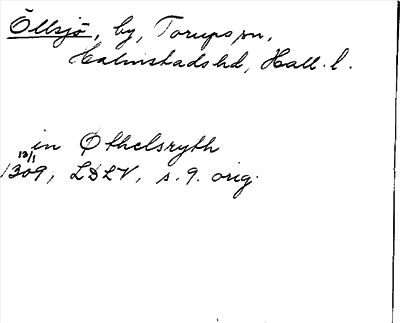 Öllsjö, by, Torups sn,
Halmstads hd, Hall. l.
in Øthelsryth
13/1
1309, LDLV, s. 9. orig.